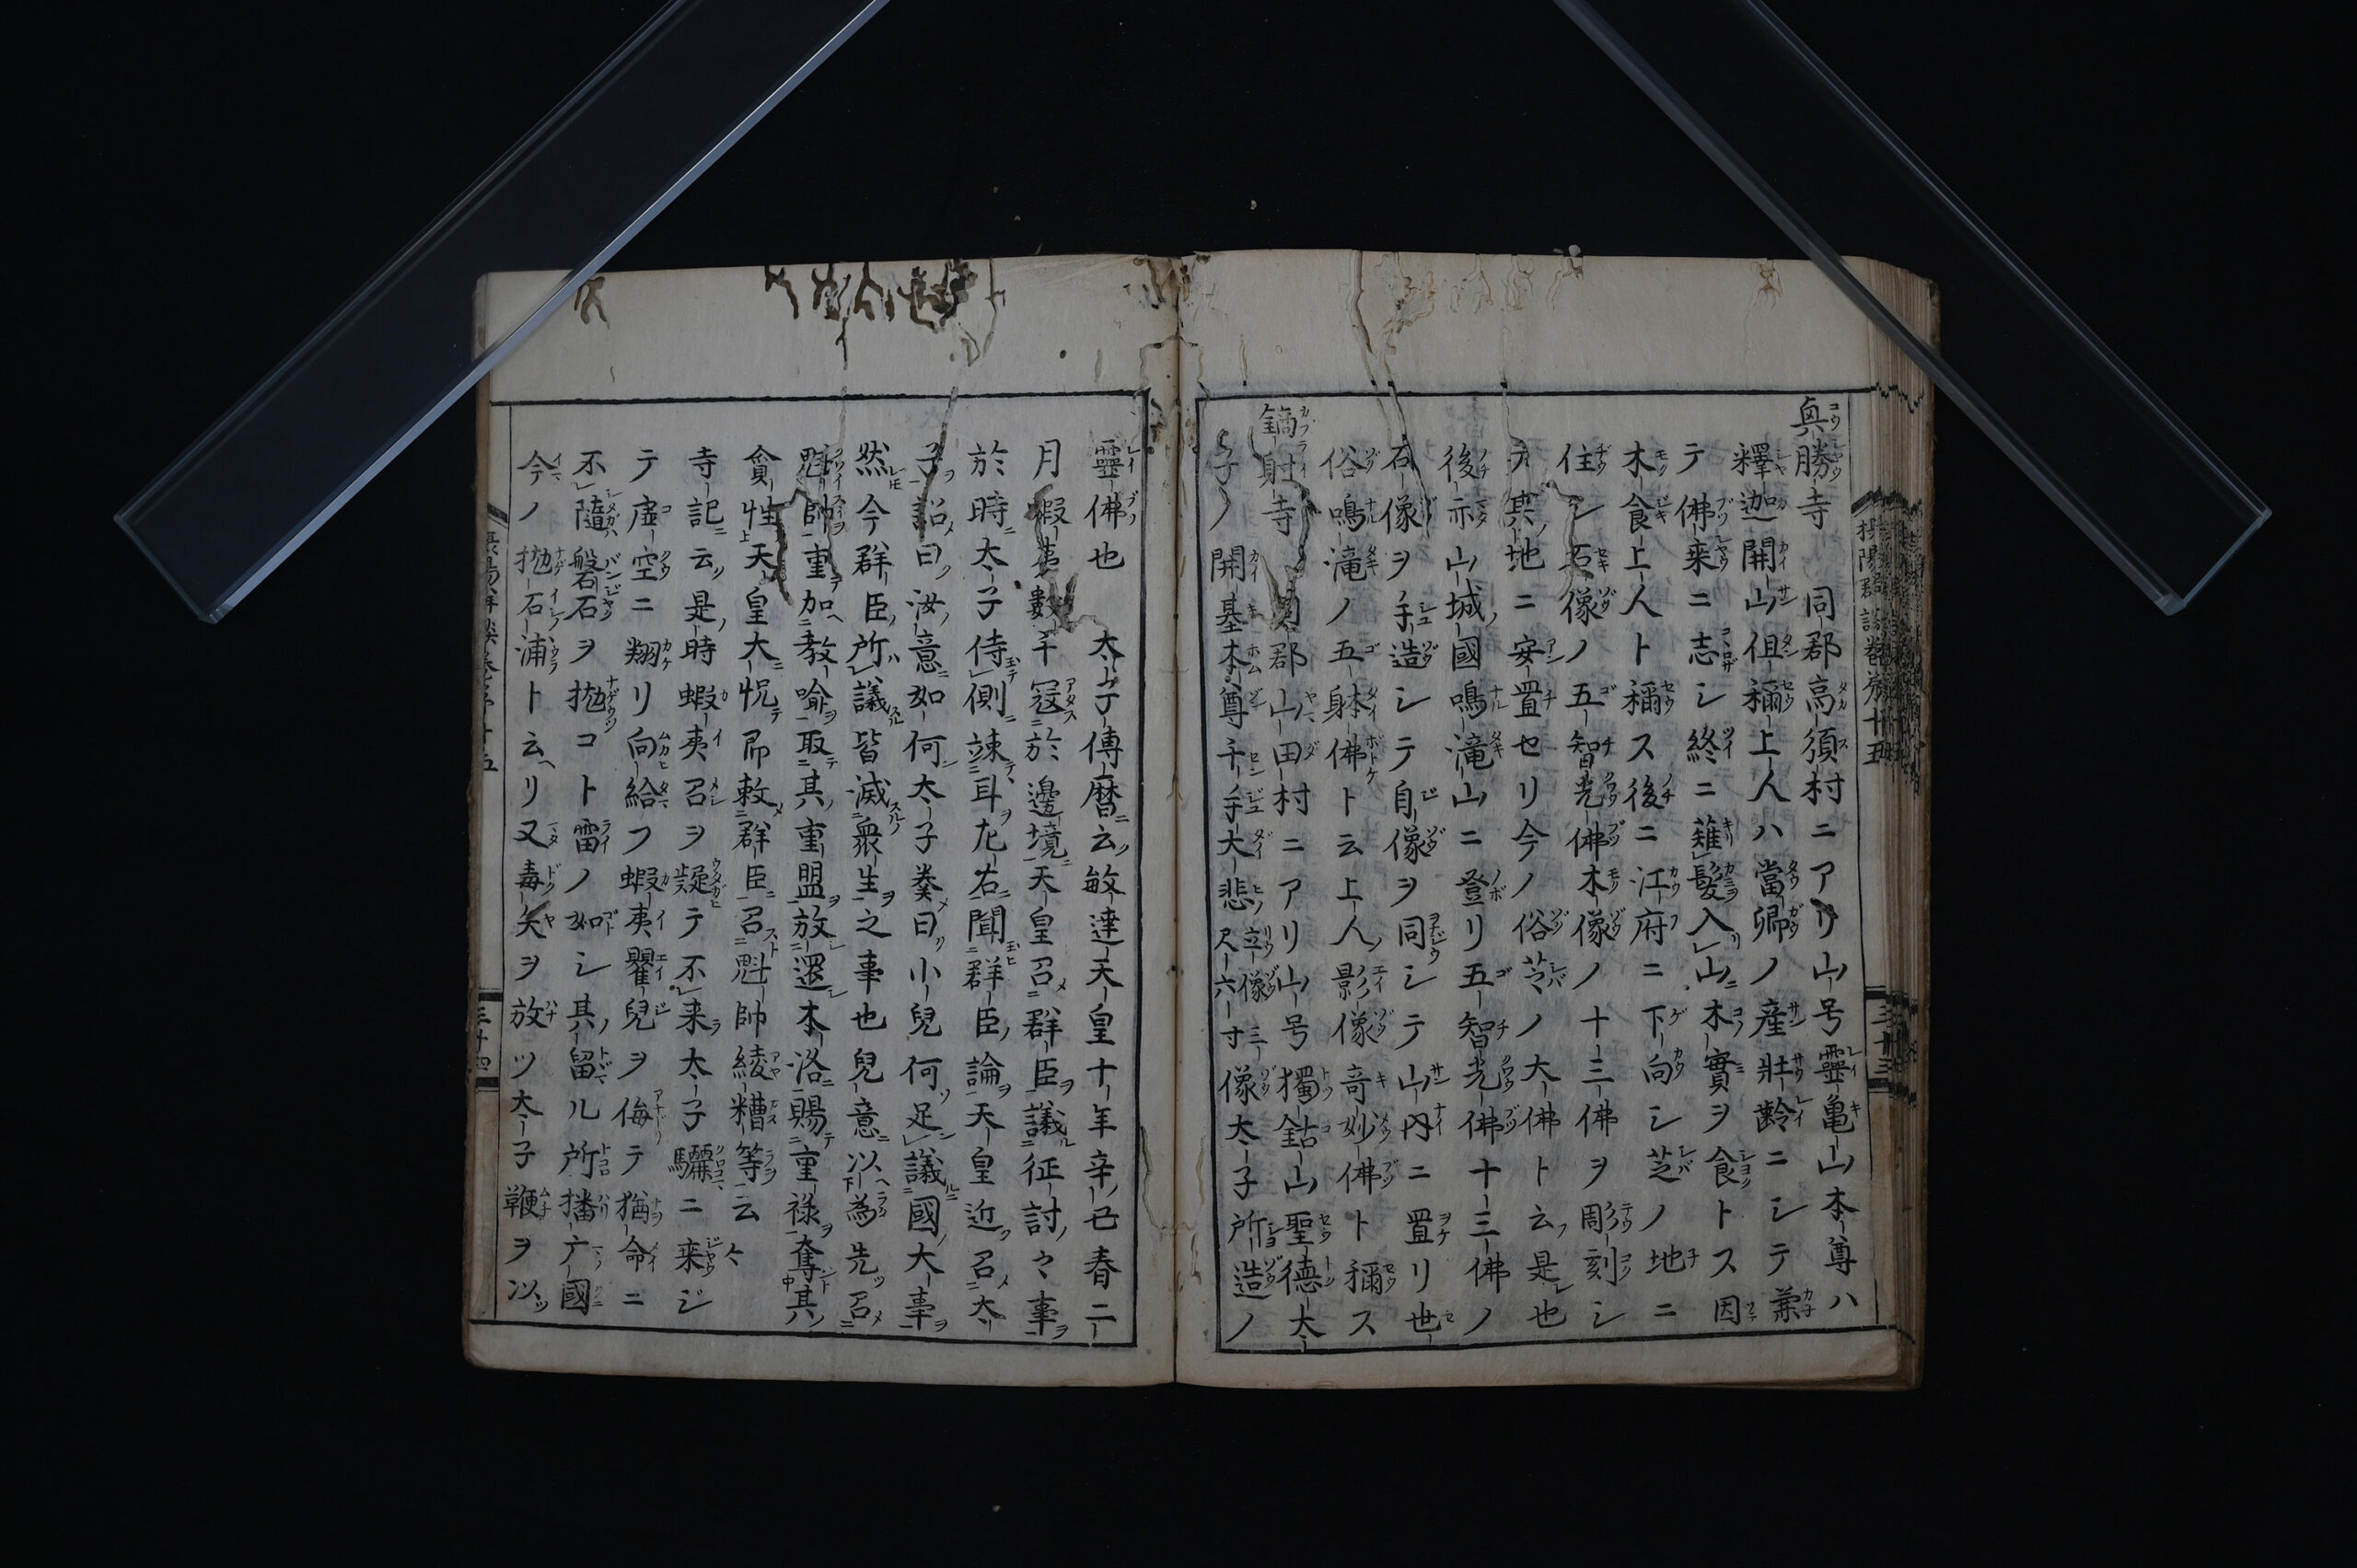 興勝寺　同郡高須村ニアリ山号靈亀山本尊ハ
釋迦開山但稱上人ハ當郷ノ産壯齡ニシテ兼
テ佛乗ニ志シ終ニ薙髮入山ニ木實ヲ食トス因
木食上人ト稱ス後ニ江府ニ下向シ芝ノ地ニ
住シ石像ノ五智光佛木像ノ十三佛ヲ彫刻シ
テ其地ニ安置セリ今ノ俗芝ノ大佛ト云是也
後示山城國鳴滝山ニ登リ五智光佛十三佛ノ
石像ヲ手造シテ自像ヲ同シテ山内ニ置リ世
俗鳴滝ノ五躰佛ト云上人ノ影像奇妙佛ト稱ス
鏑射寺　同郡山田村ニアリ山号獨鈷山聖德太
子ノ開基本尊千手大悲立像三尺六寸像太子所造ノ
靈佛也　太子傳曆ニ云敏達天皇十年辛丑春二
月蝦夷數千冦於邊境天皇召群臣ヲ議征討之事ヲ
於時ニ太子侍側ニ竦耳ヲ左右ニ聞群臣ノ論ヲ天皇近ク召太
子ヲ詔曰汝意ニ如何太子奏曰小兒何足議國ノ大事ヲ
然レモ今群臣ノ所議皆滅衆生ヲ之事也兒意ニ以為先ツ召
魁帥ヲ重テ加教喻ヲ取其ノ重盟ヲ放還本洛ニ賜重禄ヲ奪其ノ
貪性天皇大ニ悦テ即敕群臣ニ召魁帥綾糟等ヲ云々
寺記ニ云是時蝦夷召ヲ疑テ不来太子驪ニ乗ジ
テ虛空ニ翔リ向給フ蝦夷瞿兒ヲ侮テ猶命ニ
不隨磐石ヲ抛コト雷ノ如シ其ノ留ル所播广國
今ノ抛石浦ト云リ又毒矢ヲ放ツ太子鞭ヲ以
摂陽群談巻第十五
三十三
三十四